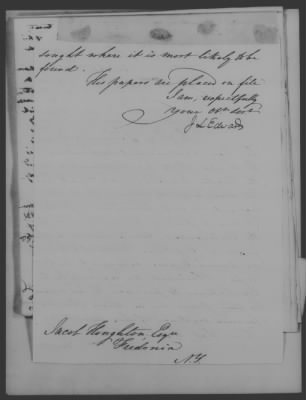 sought where it is most likely to be
found.
His papers are placed on file
I am, respectfully
Your Obt. Servt.
J L Edwards
Jacob Houghton Esqr.
Fredonia
N.Y.